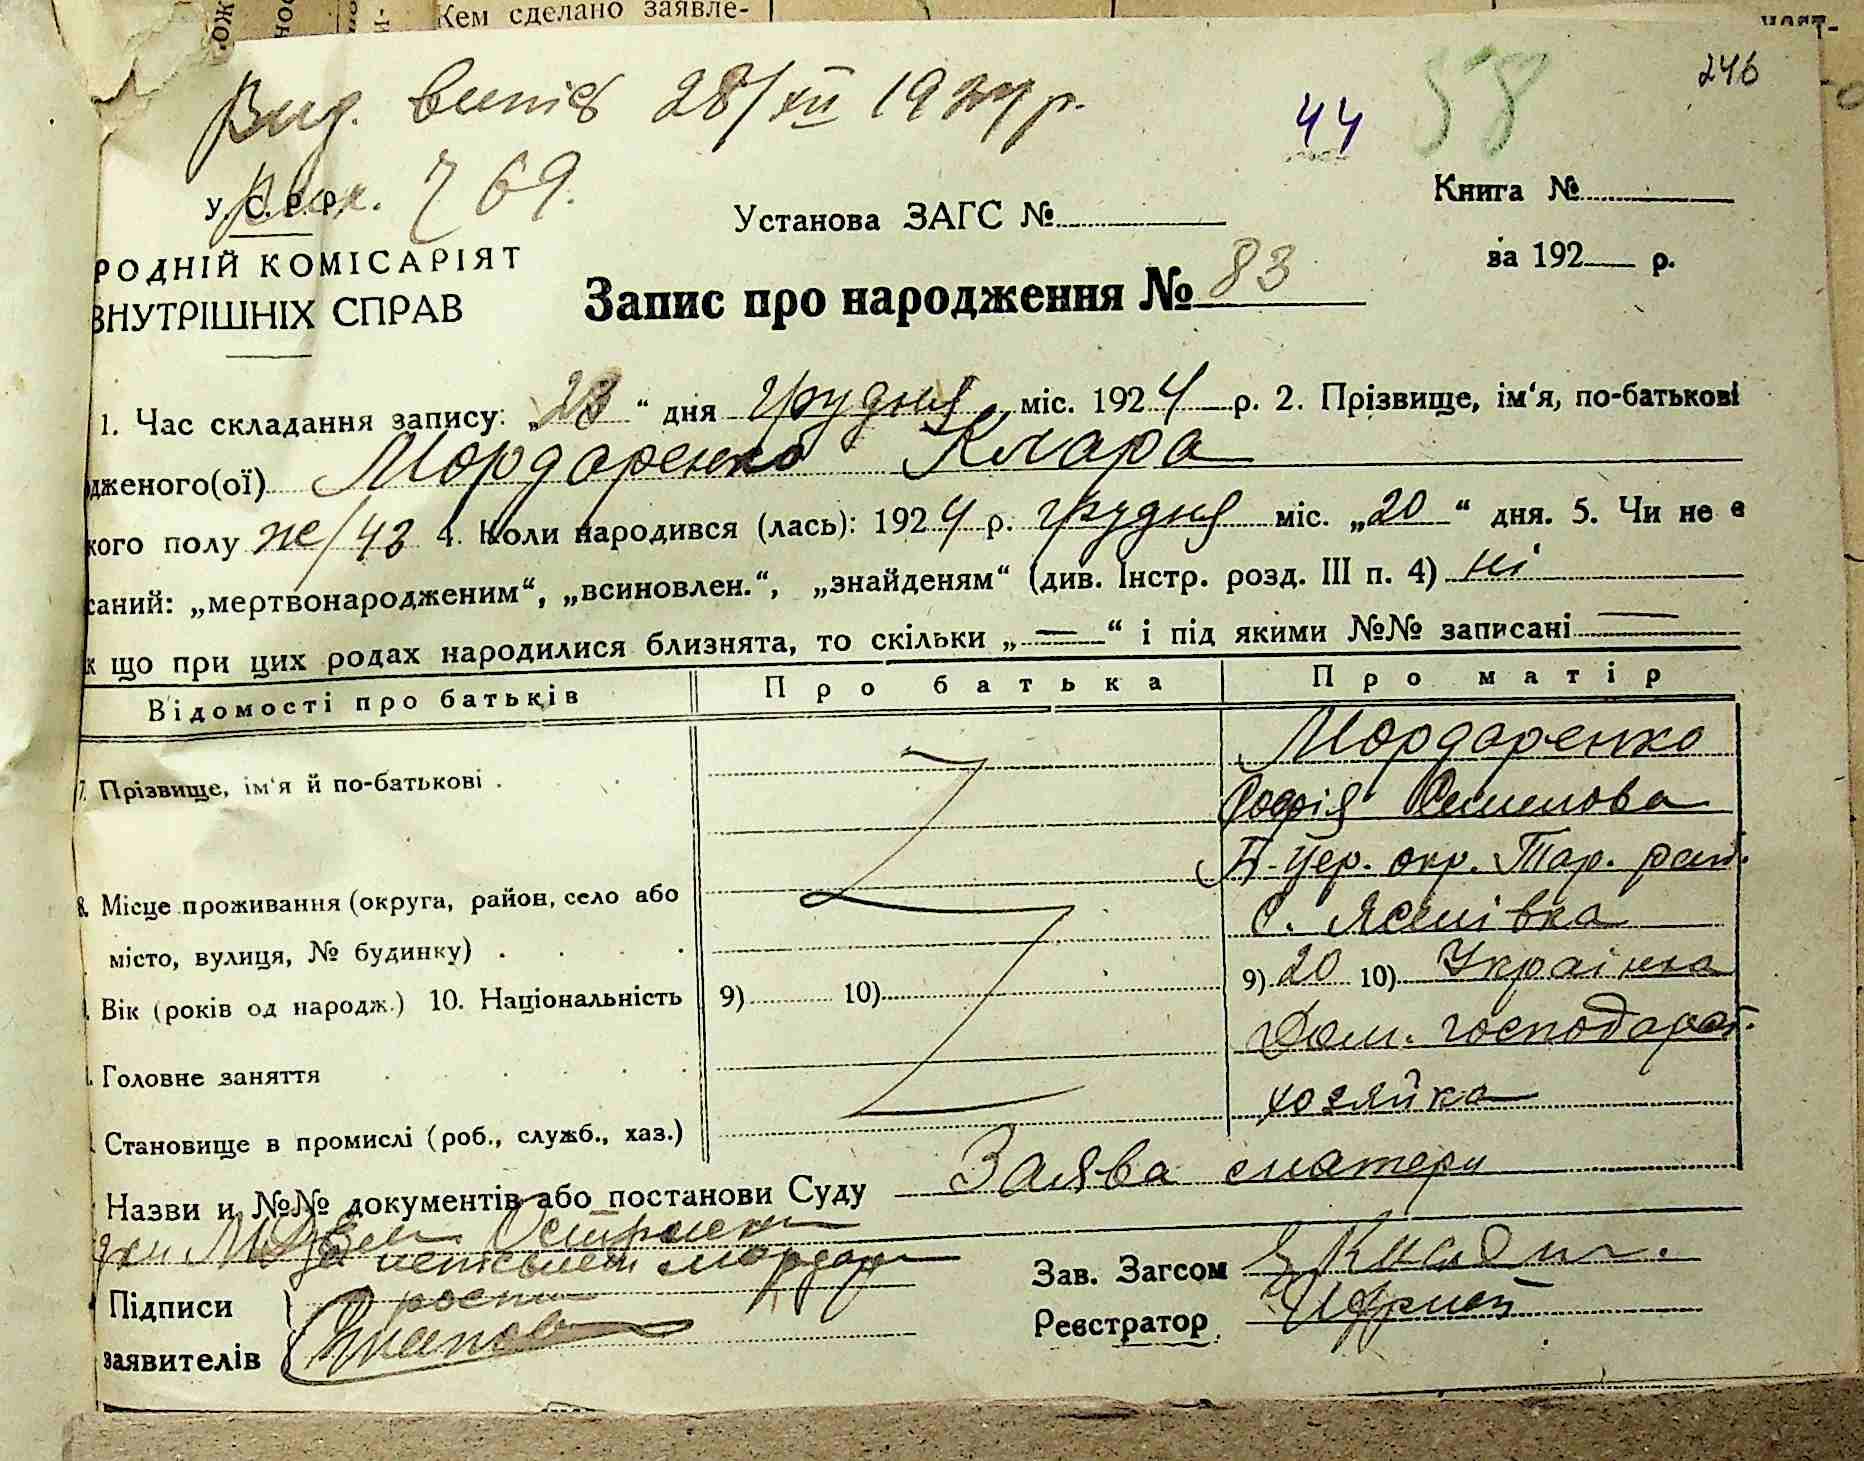 Кем сделано заявле-
246
Вид. витяг 28/XII 1924 р.
44 58
769.
У. С. Р. Р.
Установа ЗАГС №
Книга №
за 192 р.
РОДНІЙ КОМІСАРІЯТ
ВНУТРІШНІХ СПРАВ
Запис про народження № 83
1. Час складання запису: „23“ дня грудня міс. 1924 р. 2. Прізвище, ім'я, по-батькові
дженого(ої) Мордаренко Клара
кого полу ж/43 4. Коли народився (лась): 1924 р. грудня міс. „20“ дня. 5. Чи не є
саний: „мертвонародженим“, „всиновлен.“, „знайденям“ (див. Інстр. розд. III п. 4) ні
к що при цих родах народилися близнята, то скільки „—“ і під якими №№ записані —
Відомості про батьків Про батька Про матір
7. Прізвище, ім'я й по-батькові . Мордаренко
Софія
8. Місце проживання (округа, район, село або Б-Цер. окр. Тар. рай.
місто, вулиця, № будинку) . с.
Вік (років од народж.) 10. Національність 9) 10) 9) 20 10) Українка
Головне заняття Дом. господарст.
Становище в промислі (роб., служб., хаз.) хозяйка
Назви и №№ документів або постанови Суду Заява матери
Зав. Загсом
Підписи
Реєстратор
заявителів